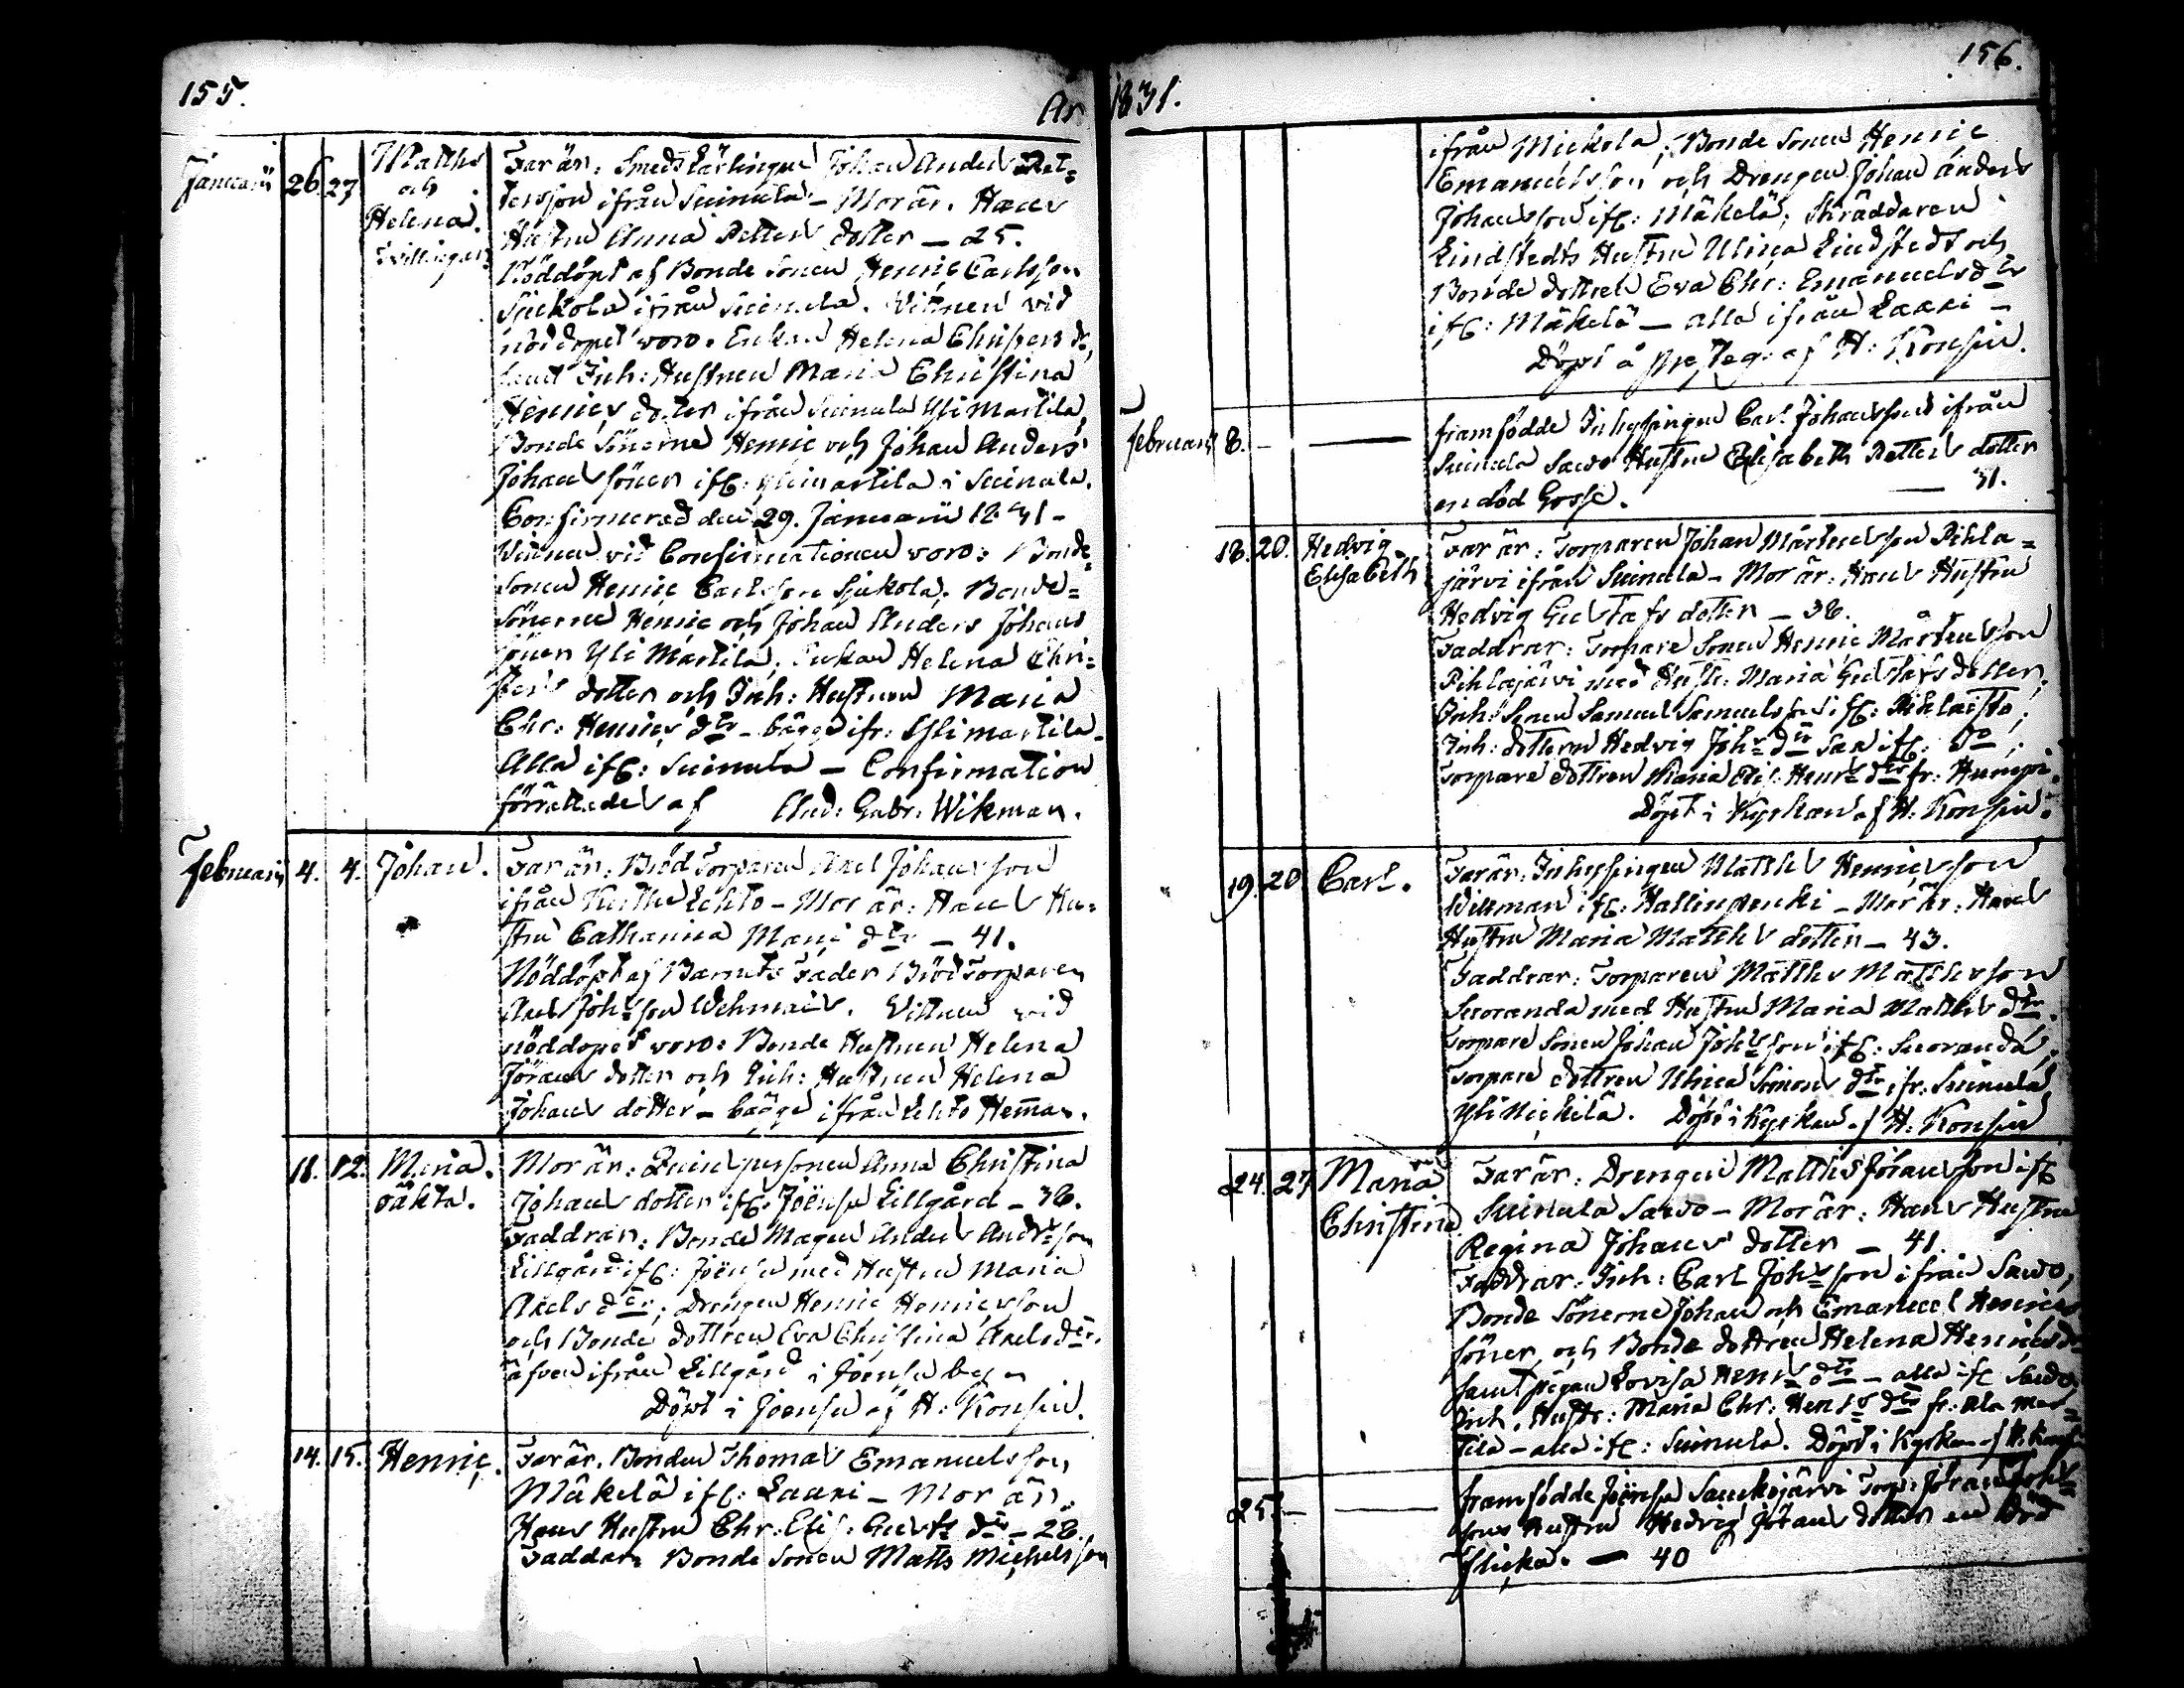 155.
År
Januarii 26. 27 Matths Far är: Smeds Lärlingen Johan Anders Pet-
och tersson ifrån Suinula - Mor är. Hans
Helena. Hustru Anna Petters dotter - 25.
Tvillingar. Nöddöpt af Bonde Sonen Henric Carlsson
Sjukola ifrån Suinula. Vittnen vid
nöddopet voro. Enkan Helena Christers dr,
samt Inh: Hustrun Maria Christina
Henrics dotter ifrån Suinula Yli Martila,
Bonde Sönerne Henric och Johan Anders
Johans söner ifr: Ylimartila i Suinula.
Confirmerad den 29. Januarii 1831 -
Vittnen vid Confirmationen voro: Bonde-
sonen Henric Carlsson Sjukola, Bonde-
sönerne Henric och Johan Anders Johans
söner Yli Martila, Enkan Helena Chri-
sters dotter och Inh: Hustrun Maria
Chr: Henrics dtr - bägge ifr: Ylimartila.
Alla ifr: Suinula - Confirmation
förrättades af And: Gabr: Wikman.
Februarii 4. 4. Johan. Far är: Brödtorparen Axel Johansson
ifrån Lehto - Mor är: Hans Hu-
stru Catharina Mans dtr - 41.
Nöddöpt af Barnets Fader Brödtorparen
Axel Johs son Wehmais. Vittnen vid
nöddopet voro: Bonde Hustrun Helena
Jörans dotter och Inh: Hustrun Helena
Johans dotter - bägge ifrån Lehto Heman.
11. 12. Maria. Mor är: Qvinspersonen Anna Christina
oäkta. Johans dotter ifr: Joënsu Lillgård - 38.
Faddrar: Bonde Magen Anders Andrs son
Lillgård ifr: Joënsu med Hustru Maria
Axels dtr; Drengen Henric Henricsson
och Bonde dottren Eva Christina Axels dtr.
äfven ifrån Lillgård i Joensu by -
Döpt i Joensu af H: Konsin.
14. 15. Henric. Far är. Bonden Thomas Emanuelsson
Mäkelä ifr: Laaxi - Mor är.
Hans Hustru Chr: Elis: Gustfs dtr - 28.
Faddrar: Bonde Sonen Matts Michelsson
156.
1831.
ifrån Mickola, Bonde Sonen Henric
Emanuelsson och Drengen Johan Anders
Johansson ifr: Mäkelä, Skräddaren
Lindstedts Hustru Ulrica Lindstedt och
Bonde dottren Eva Chr: Emanuels dtr
ifr: Mäkelä - alla ifrån Laaxi -
Döpt å af H: Konsin.
Februarii 8. - framfödde Inhysingen Carl Johanssons ifrån
Suinula Sawo Hustru Elisabeth Petters dotter
en död Gosse. - 31.
18. 20. Hedvig Far är: Torparen Johan Mårtensson Pihla-
Elisabeth järvi ifrån Suinula - Mor är: Hans Hustru
Hedvig Gustafs dotter - 38.
Faddrar: Torpare Sonen Henric Mårtensson
Pihlajärvi med Hustr: Maria Gustafs dotter,
Inh: Sonen Samuel Samuelsson ifr: Pihlaisto,
Inh: dottren Hedvig Johs dtr ifr: do,
Torpare dottren Maria Elis: Henrs dtr fr: Humpi.
Döpt i Kyrkan af H: Konsin.
19. 20. Carl. Far är: Inhysingen Matths Henricsson
Willman ifr: Hallinpenki - Mor är: Hans
Hustru Maria Matths dotter - 43.
Faddrar: Torparen Matths Matthsson
Suoranda med Hustru Maria Matths dtr,
Torpare Sonen Johan Johs son ifr: Suoranda,
Torpare dottren Ulrica Simons dtr ifr: Suinula
Yli Nickilä. Döpt i Kyrkan af H: Konsin
24. 27 Maria Far är: Drengen Matths Johansson ifr
Christina Suinula Sawo - Mor är: Hans Hustru
Regina Johans dotter - 41.
Faddrar: Inh: Carl Johs son ifrån Sawo,
Bonde Sönerne Johan och Emanuel Henrics
söner, och Bonde dottren Helena Henrics dr
samt pigan Lovisa Henrs dtr - alla ifr Sawo,
Inh. Hustr: Maria Chr: Henrs dtr fr: Ala mar-
tila - alla ifr: Suinula. Döpt i Kyrkan af H. Konsin
25. - framfödde Joënsu Saukojärvi Torp: Jöran Johs
sons Hustru Hedvig Jörans dotter en död
flicka. - 40